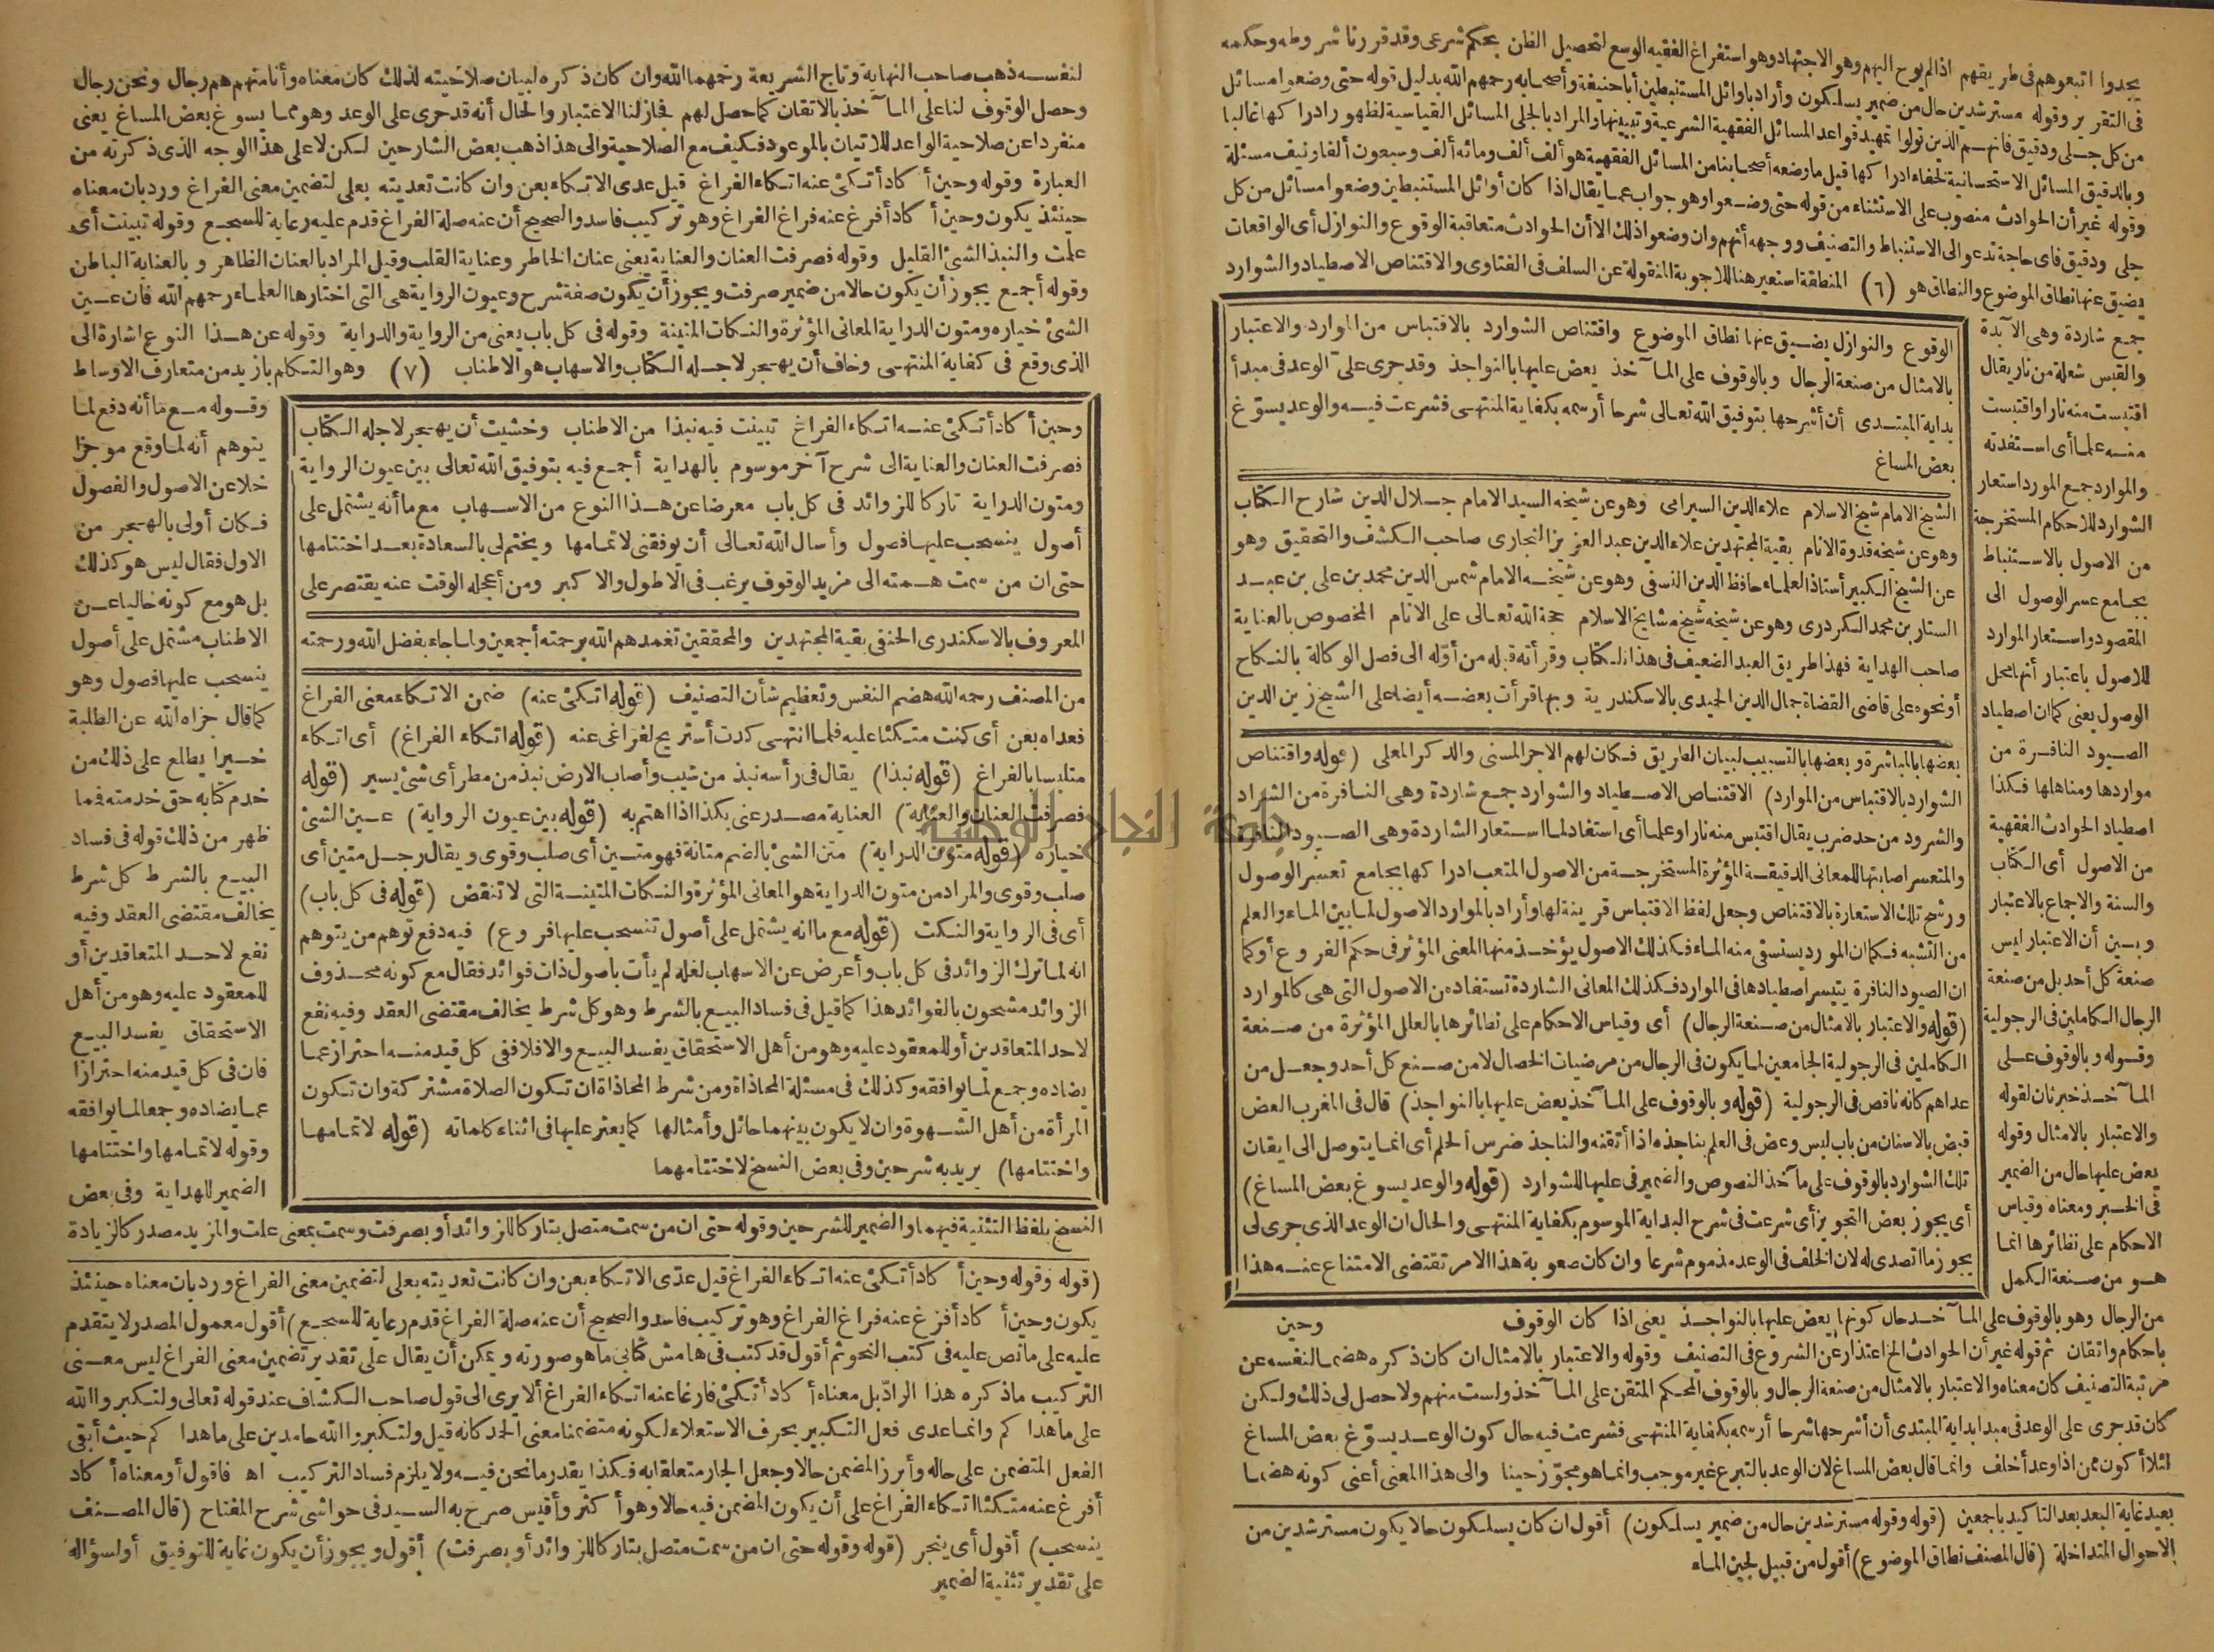 يجدوا اتبعوهم فى طريقهم اذالم يوح اليهم وهو الاجتهاد وهو استفراغ الفقيه الوسع لتحصيل الظن بحكم شرعى وقد قررنا شروطه وحكمه
فى التقرير وقوله مسترشدين حال من ضمير يسلكون وأراد باوائل المستنبطين أبا حنيفة وأصحابه رحمهم الله بدليل قوله حتى وضعوا مسائل
من كل جلى ودقيق فانهم الذين تولوا تمهيد قواعد المسائل الفقهية الشرعية وتبيينها والمراد بالجلى المسائل القياسية لظهور ادراكها غالبا
وبالدقيق المسائل الاستحسانية لخفاء ادراكها قيل ما وضعه أصحابنا من المسائل الفقهية هو ألف ألف ومائه ألف وسبعون ألفا ونيف مسئلة
وقوله غير أن الحوادث منصوب على الاستثناء من قوله حتى وضعوا وهو جواب عما يقال اذا كان أوائل المستنبطين وضعوا مسائل من كل
جلى ودقيق فاى حاجة تدعو الى الاستنباط والتصنيف ووجهه أنهم وان وضعوا ذلك الا أن الحوادث متعاقبة الوقوع والنوازل أى الواقعات
يضيق عنها نطاق الموضوع والنطاق هو (٦) المنطقة استعير هنا للاجوبة المنقولة عن السلف فى الفتاوى والاقتناص الاصطياد والشوارد
جمع شاردة وهى الآبدة
والقبس شعلة من نار يقال
اقتبست منه نارا واقتبست
منه علما أى استفدته
والموارد جمع المورد استعار
الشوارد للاحكام المستخرجة
من الاصول بالاستنباط
بجامع عسر الوصول الى
المقصود واستعار الموارد
للاصول باعتبار أنها محل
الوصول يعنى كما ان اصطياد
الصيود النافرة من
مواردها ومناهلها فكذا
اصطياد الحوادث الفقهية
من الاصول أى الكتاب
والسنة والاجماع بالاعتبار
وبين أن الاعتبار ليس
صنعة كل أحد بل من صنعة
الرجال الكاملين فى الرجولية
وقوله وبالوقوف على
المآخذ خبر ثان لقوله
والاعتبار بالامثال وقوله
يعض عليها حال من الضمير
فى الخبر ومعناه وقياس
الاحكام على نظائرها انما
هو من صنعة الكمل
الوقوع والنوازل يضيق عنها نطاق الموضوع واقتناص الشوارد بالاقتباس من الموارد والاعتبار
بالامثال من صنعة الرجال وبالوقوف على المآخذ يعض عليها بالنواجذ وقد جرى علىّ الوعد فى مبدأ
بداية المبتدى أن أشرحها بتوفيق الله تعالى شرحا أرسمه بكفاية المنتهى فشرعت فيه والوعد يسوّغ
بعض المساغ
الشيخ الامام شيخ الاسلام علاء الدين السيرامى وهو عن شيخه السيد الامام جلال الدين شارح الكتاب
وهو عن شيخه قدوة الانام بقية المجتهدين علاء الدين عبد العزيز النجارى صاحب الكشف والتحقيق وهو
عن الشيخ الكبير أستاذ العلماء حافظ الدين النسفى وهو عن شيخه الامام شمس الدين محمد بن على بن عبد
الستار بن محمد الكردرى وهو عن شيخه شيخ مشايخ الاسلام حجة الله تعالى على الانام المخصوص بالعناية
صاحب الهداية فهذا طريق العبد الضعيف فى هذا الكتاب وقرأته قبله من أوّله الى فصل الوكالة بالنكاح
أو نحوه على قاضى القضاة جمال الدين الحميدى بالاسكندرية وبها قرأت بعضه أيضا على الشيخ زين الدين
بعضها بالمباشرة وبعضها بالتسبيب لبيان الطريق فكان لهم الاجر المسنى والذكر المعلى (قوله واقتناص
الشوارد بالاقتباس من الموارد) الاقتناص الاصطياد والشوارد جمع شاردة وهى النافرة من الشراد
والشرود من حد ضرب يقال اقتبس منه نارا وعلما أى استفاد لما استعار الشاردة وهى الصيود النافرة
والمتعسر اصابتها للمعانى الدقيقة المؤثرة المستخرجة من الاصول المتعب ادراكها بجامع تعسر الوصول
ورشح تلك الاستعارة بالاقتناص وجعل لفظ الاقتباس قرينة لها وأراد بالموارد الاصول لما بين الماء والعلم
من التشبه فكما ان المورد يستسقى منه الماء فكذلك الاصول يؤخذ منها المعنى المؤثر فى حكم الفروع أو كما
ان الصيود النافرة يتيسر اصطيادها فى الموارد فكذلك المعانى الشاردة تستفاد من الاصول التى هى كالموارد
(قوله والاعتبار بالامثال من صنعة الرجال) أى وقياس الاحكام على نظائرها بالعلل المؤثرة من صنعة
الكاملين فى الرجولية الجامعين لما يكون فى الرجال من مرضيات الخصال لا من صنع كل أحد وجعل من
عداهم كانه ناقص فى الرجولية (قوله وبالوقوف على المآخذ يعض عليها بالنواجذ) قال فى المغرب العض
قبض بالاسنان من باب ليس وعض فى العلم بناجذه اذا أتقنه والناجذ ضرس الحلم أى انما يتوصل الى ايقان
تلك الشوارد بالوقوف على مآخذ النصوص والضمير فى عليها للشوارد (قوله والوعد يسوغ بعض المساغ)
أى يجوز بعض التجويز أى شرعت فى شرح البداية الموسوم بكفاية المنتهى والحال ان الوعد الذى جرى لى
يجوز ما اتصدى له لان الخلف فى الوعد مذموم شرعا وان كان صعوبة هذا الامر تقتضى الامتناع عنه هذا
من الرجال وهو بالوقوف على المآخذ حال كونها يعض عليها بالنواجذ يعنى اذا كان الوقوف وحين
باحكام واتقان ثم قوله غير أن الحوادث الخ اعتذار عن الشروع فى التصنيف وقوله والاعتبار بالامثال ان كان ذكره هضما لنفسه عن
مرتبة التصنيف كان معناه والاعتبار بالامثال من صنعة الرجال وبالوقوف المحكم المتقن على المآخذ ولست منهم ولا حصل لى ذلك ولكن
كان قد جرى على الوعد فى مبدا بداية المبتدى أن أشرحها شرحا أرسمه بكفاية المنتهى فشرعت فيه حال كون الوعد يسوّغ بعض المساغ
لئلا أكون ممن اذا وعد أخلف وانما قال بعض المساغ لان الوعد بالتبرع غير موجب وانما هو مجوّز حينا والى هذا المعنى أعنى كونه هضما
بعيد غاية البعد بعد التاكيد باجمعين (قوله وقوله مسترشدين حال من ضمير يسلكون) أقول ان كان يسلكون حالا يكون مسترشدين من
الاحوال المتداخلة (قال المصنف نطاق الموضوع) أقول من قبيل لجين الماء
لنفسه ذهب صاحب النهاية وتاج الشريعة رحمهما الله وان كان ذكره لبيان صلاحيته لذلك كان معناه وأنا منهم هم رجال ونحن رجال
وحصل الوقوف لنا على المآخذ بالاتقان كما حصل لهم فجاز لنا الاعتبار والحال أنه قد جرى على الوعد وهو مما يسوغ بعض المساغ يعنى
منفردا عن صلاحية الواعد للاتيان بالموعود فكيف مع الصلاحية والى هذا ذهب بعض الشارحين لكن لا على هذا الوجه الذى ذكرته من
العبارة وقوله وحين أكاد أتكئ عنه اتكاء الفراغ قيل عدى الاتكاء بعن وان كانت تعديته بعلى لتضمين معنى الفراغ ورد بان معناه
حينئذ يكون وحين أكاد أفرغ عنه فراغ الفراغ وهو تركيب فاسد والصحيح أن عنه صلة الفراغ قدم عليه رعاية للسجع وقوله تبينت أى
علمت والنبذ الشئ القليل وقوله فصرفت العنان والعناية يعنى عنان الخاطر وعناية القلب وقيل المراد بالعنان الظاهر وبالعناية الباطن
وقوله أجمع يجوز أن يكون حالا من ضمير صرفت ويجوز أن يكون صفة شرح وعيون الرواية هى التى اختارها العلماء رحمهم الله فان عين
الشئ خياره ومتون الدراية المعانى المؤثرة والنكات المتينة وقوله فى كل باب يعنى من الرواية والدراية وقوله عن هذا النوع اشارة الى
الذى وقع فى كفاية المنتهى وخاف أن يهجر لاجله الكتاب والاسهاب هو الاطناب (٧) وهو التكلم بازيد من متعارف الاوساط
وقوله مع ما أنه دفع لما
يتوهم أنه لما وقع موجزا
خلا عن الاصول والفصول
فكان أولى بالهجر من
الاول فقال ليس هو كذلك
بل هو مع كونه خاليا عن
الاطناب مشتمل على أصول
ينسحب عليها فصول وهو
كما قال جزاه الله عن الطلبة
خيرا يطلع على ذلك من
خدم كتابه حق خدمته فما
ظهر من ذلك قوله فى فساد
البيع بالشرط كل شرط
يخالف مقتضى العقد وفيه
نفع لاحد المتعاقدين أو
للمعقود عليه وهو من أهل
الاستحقاق يفسد البيع
فان فى كل قيد منه احترازا
عما يضاده وجمعا لما يوافقه
وقوله لاتمامها واختتامها
الضمير للهداية وفى بعض
وحين أكاد أتكئ عنه اتكاء الفراغ تبينت فيه نبذا من الاطناب وخشيت أن يهجر لاجله الكتاب
فصرفت العنان والعناية الى شرح آخر موسوم بالهداية أجمع فيه بتوفيق الله تعالى بين عيون الرواية
ومتون الدراية تاركا للزوائد فى كل باب معرضا عن هذا النوع من الاسهاب مع ما أنه يشتمل على
أصول ينسحب عليها فصول وأسال الله تعالى أن يوفقنى لاتمامها ويختم لى بالسعادة بعد اختتامها
حتى ان من سمت همته الى مزيد الوقوف يرغب فى الاطول والاكبر ومن أعجله الوقت عنه يقتصر على
المعروف بالاسكندرى الحنفى بقية المجتهدين والمحققين تغمدهم الله برحمته أجمعين ولما جاء بفضل الله ورحمته
من المصنف رحمه الله هضم النفس وتعظيم شأن التصنيف (قوله اتكئ عنه) ضمن الاتكاء معنى الفراغ
فعداه بعن أى كنت متكئا عليه فلما انتهى كدت أستريح لفراغى عنه (قوله اتكاء الفراغ) أى اتكاء
متلبسا بالفراغ (قوله نبذا) يقال فى رأسه نبذ من شيب وأصاب الارض نبذ من مطر أى شئ يسير (قوله
فصرفت العنان والعناية) العناية مصدر عنى بكذا اذا اهتم به (قوله بين عيون الرواية) عين الشئ
خياره (قوله متون الدراية) متن الشئ بالضم متانة فهو متين أى صلب وقوى ويقال رجل متين أى
صلب وقوى والمراد من متون الدراية هو المعانى المؤثرة والنكات المتينة التى لا تنقض (قوله فى كل باب)
أى فى الرواية والنكت (قوله مع ما انه يشتمل على أصول تنسحب عليها فروع) فيه دفع توهم من يتوهم
انه لما ترك الزوائد فى كل باب وأعرض عن الاسهاب لعله لم يأت بأصول ذات فوائد فقال مع كونه محذوف
الزوائد مشحون بالفوائد هذا كما قيل فى فساد البيع بالشرط وهو كل شرط يخالف مقتضى العقد وفيه نفع
لاحد المتعاقدين أو للمعقود عليه وهو من أهل الاستحقاق يفسد البيع والا فلا ففى كل قيد منه احتراز عما
يضاده وجمع لما يوافقه وكذلك فى مسئلة المحاذاة ومن شرط المحاذاة ان تكون الصلاة مشتركة وان تكون
المرأة من أهل الشهوة وان لا يكون بينهما حائل وأمثالها كما يعثر عليها فى اثناء كلماته (قوله لاتمامها
واختتامها) يريد به شرحين وفى بعض النسخ لاختتامهما
النسخ بلفظ التثنية فيهما والضمير للشرحين وقوله حتى ان من سمت متصل بتاركا للزوائد أو بصرفت وسمت بمعنى علت والمزيد مصدر كالزيادة
(قوله وقوله وحين أكاد أتكئ عنه اتكاء الفراغ قيل عدّى الاتكاء بعن وان كانت تعديته بعلى لتضمين معنى الفراغ ورد بان معناه حينئذ
يكون وحين أكاد أفرغ عنه فراغ الفراغ وهو تركيب فاسد والصحيح أن عنه صلة الفراغ قدم رعاية للسجع) أقول معمول المصدر لا يتقدم
عليه على ما نص عليه فى كتب النحو ثم أقول قد كتب فى هامش كتابى ما هو صورته ويمكن أن يقال على تقدير تضمين معنى الفراغ ليس معنى
التركيب ما ذكره هذا الرادّ بل معناه أكاد أتكئ فارغا عنه اتكاء الفراغ ألا يرى الى قول صاحب الكشاف عند قوله تعالى ولتكبروا الله
على ما هداكم وانما عدى فعل التكبير بحرف الاستعلاء لكونه متضمنا معنى الحمد كانه قيل ولتكبروا الله حامدين على ما هداكم حيث أبقى
الفعل المتضمن على حاله وأبرز المضمن حالا وجعل الجار متعلقا به فكذا يقدر ما نحن فيه ولا يلزم فساد التركيب اه فاقول أو معناه أكاد
أفرغ عنه متكئا اتكاء الفراغ على أن يكون المضمن فيه حالا وهو أكثر وأقيس صرح به السيد فى حواشى شرح المفتاح (قال المصنف
ينسحب) أقول أى ينجر (قوله وقوله حتى ان من سمت متصل بتاركا للزوائد أو بصرفت) أقول ويجوز أن يكون غاية للتوفيق أو لسؤاله
على تقدير تثنية الضمير
جامعة النجاح الوطنية